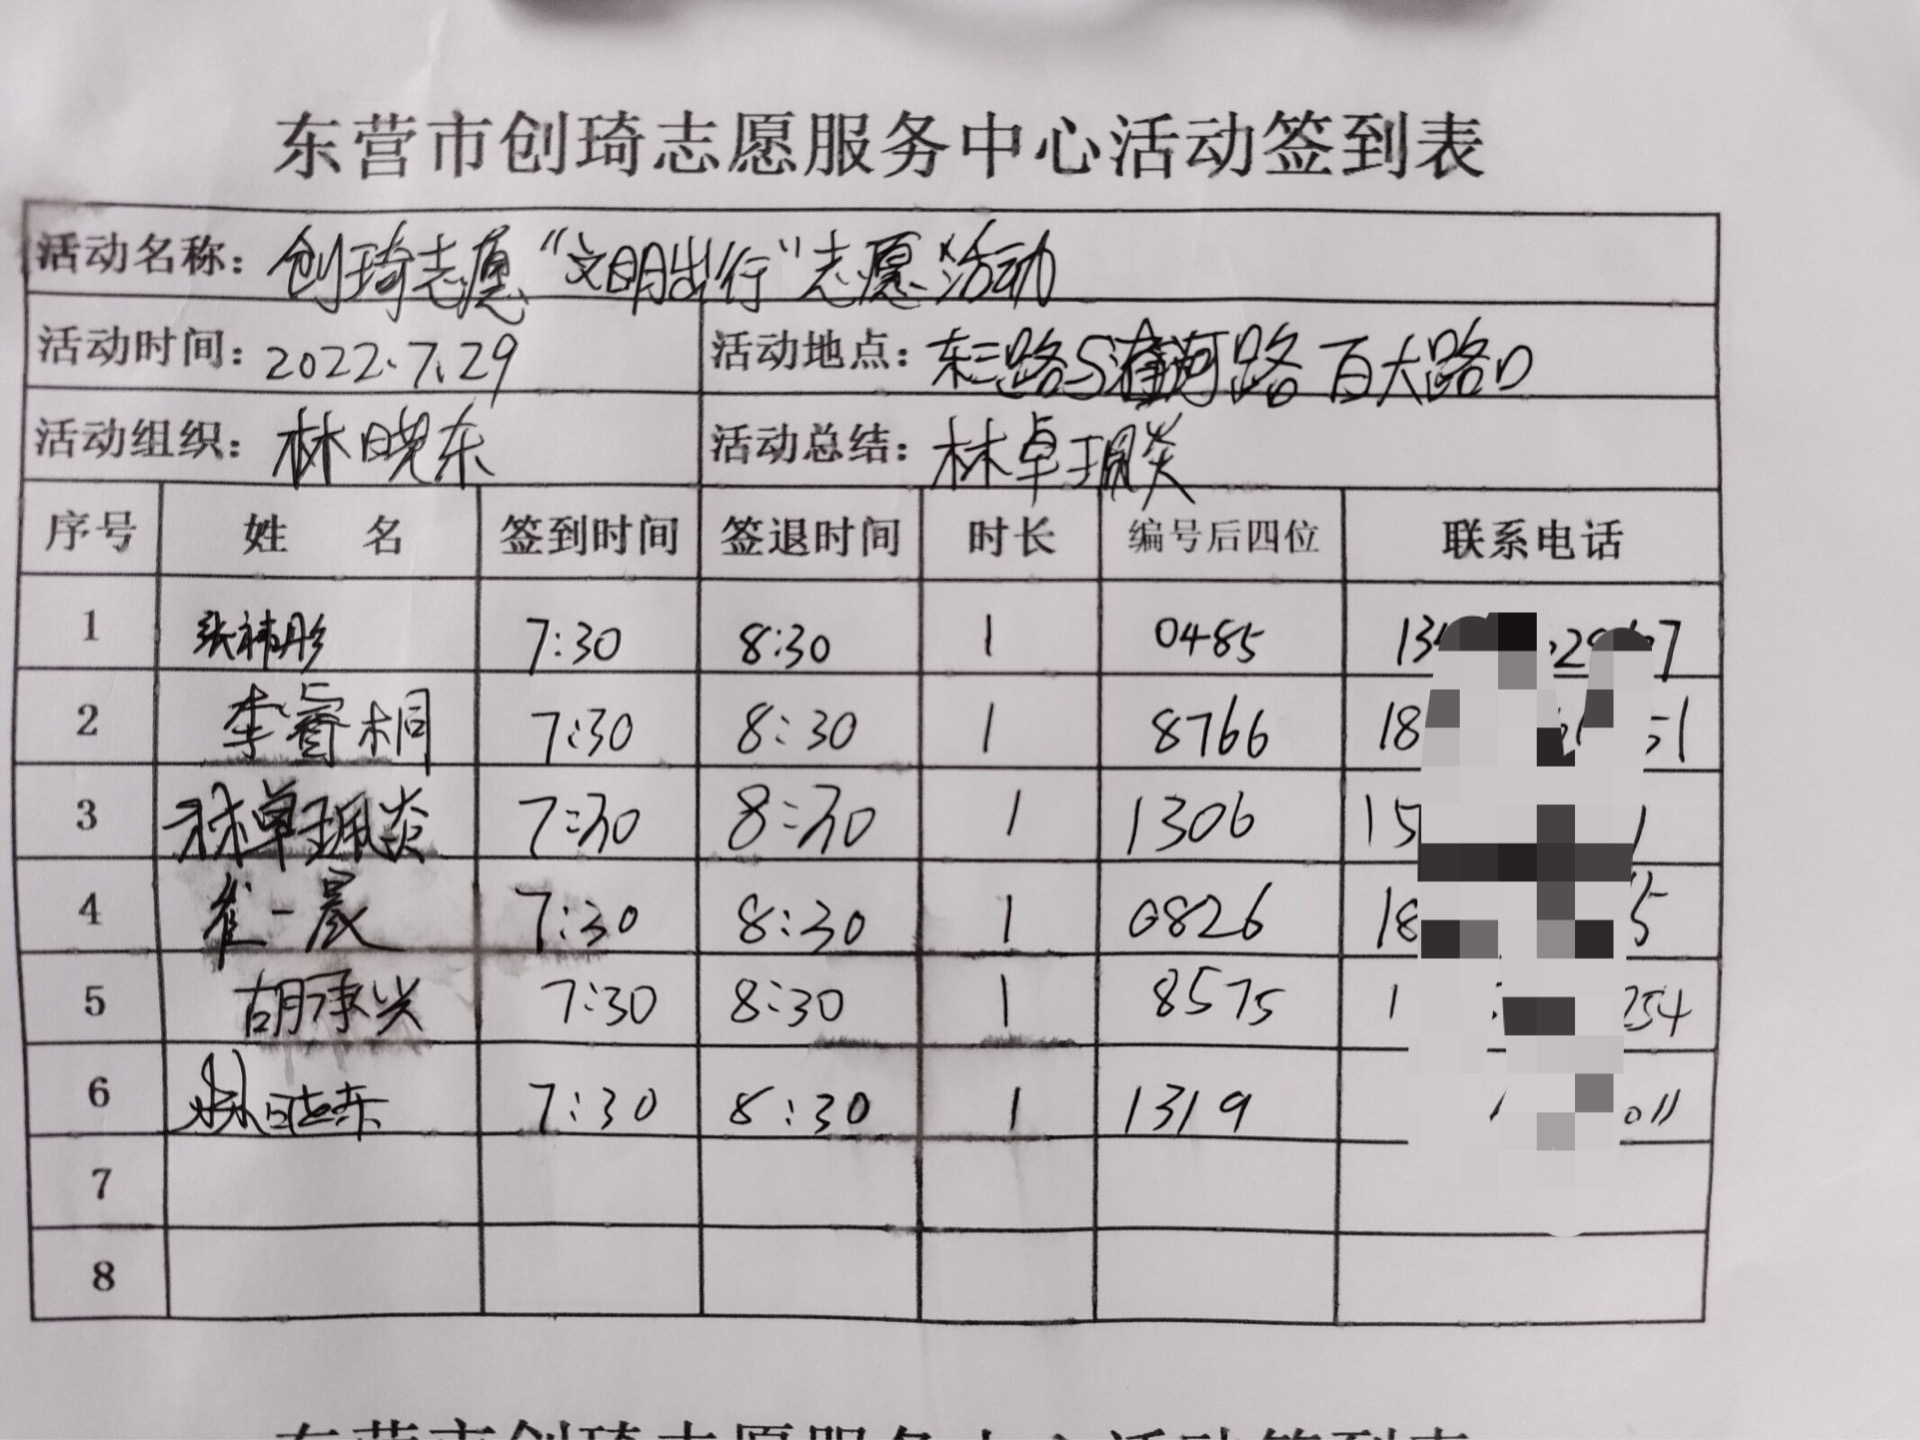 东营市创琦志愿服务中心活动签到表
活动名称：创琦志愿“文明出行”志愿活动
活动时间：2022.7.29 活动地点：东三路与淄河路 百大路口
活动组织：林晓东 活动总结：林卓珮炎
序号 姓 名 签到时间 签退时间 时长 编号后四位 联系电话
1 张祎彤 7:30 8:30 1 0485 13
2 李睿桐 7:30 8:30 1 8766 18 51
3 林卓珮炎 7:30 8:30 1 1306 15 1
4 崔一晨 7:30 8:30 1 0826 18 5
5 胡承兴 7:30 8:30 1 8575 1 254
6 林晓东 7:30 8:30 1 1319 011
7
8
东营市创琦志愿服务中心活动签到表